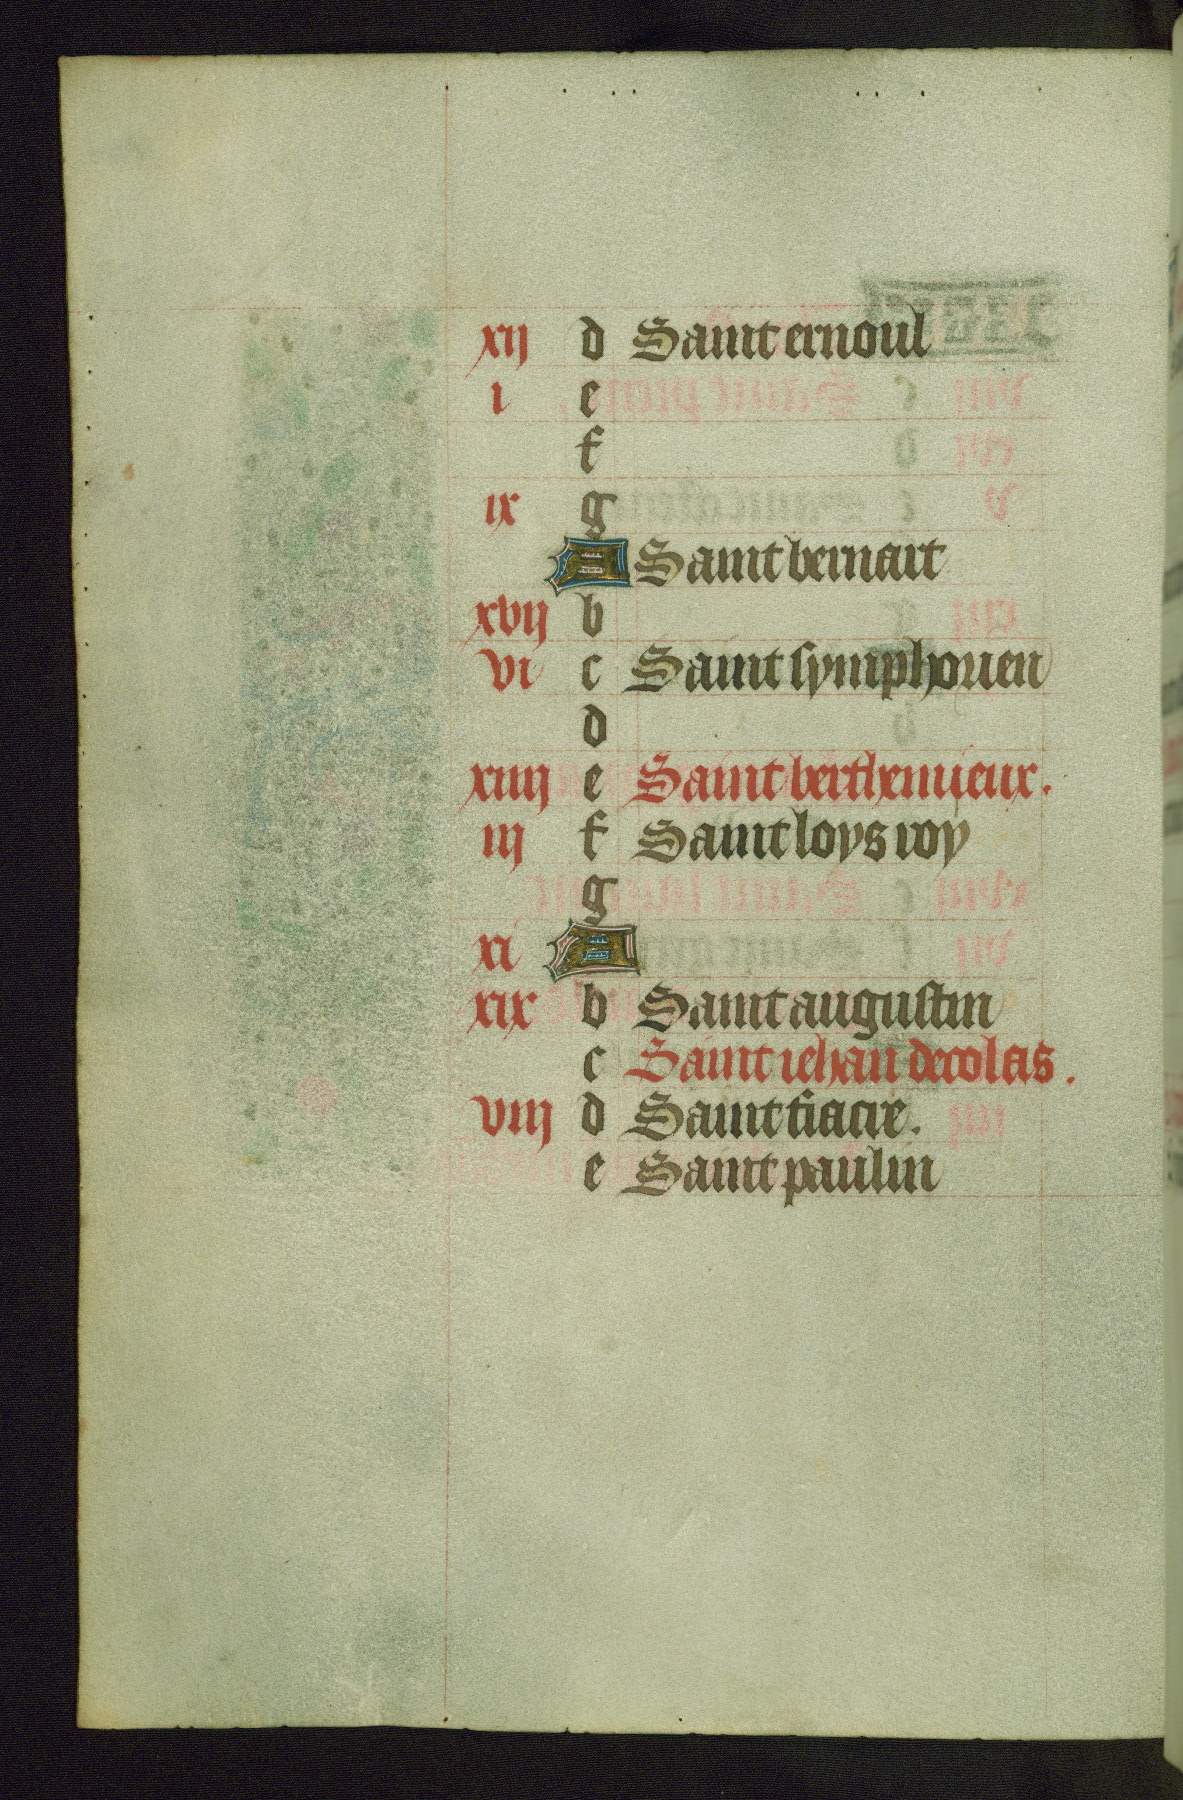 xij d Saint ernoul
i e
f
ix g
A Saint bernart
xvij b
vi c Saint symphorien
d
xiiij e Saint berthemieux.
iij f Saint loys roy
g
xi A
xix b Saint augustin
c Saint iehan decolas.
viij d Saint fiacre.
e Saint paulin